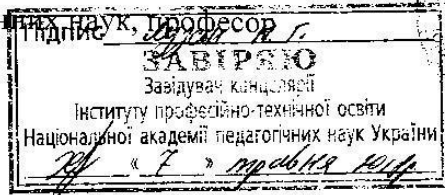 наук, професор
Підпис
ЗАВІРЯЮ
Завідувач канцелярії
Інституту професійно-технічної освіти
Національної академії педагогічних наук України
« 7 » травня